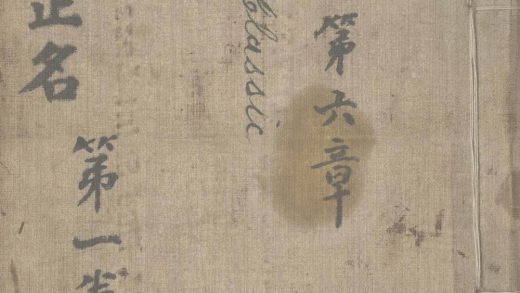 第六章
Classic
第一
正名